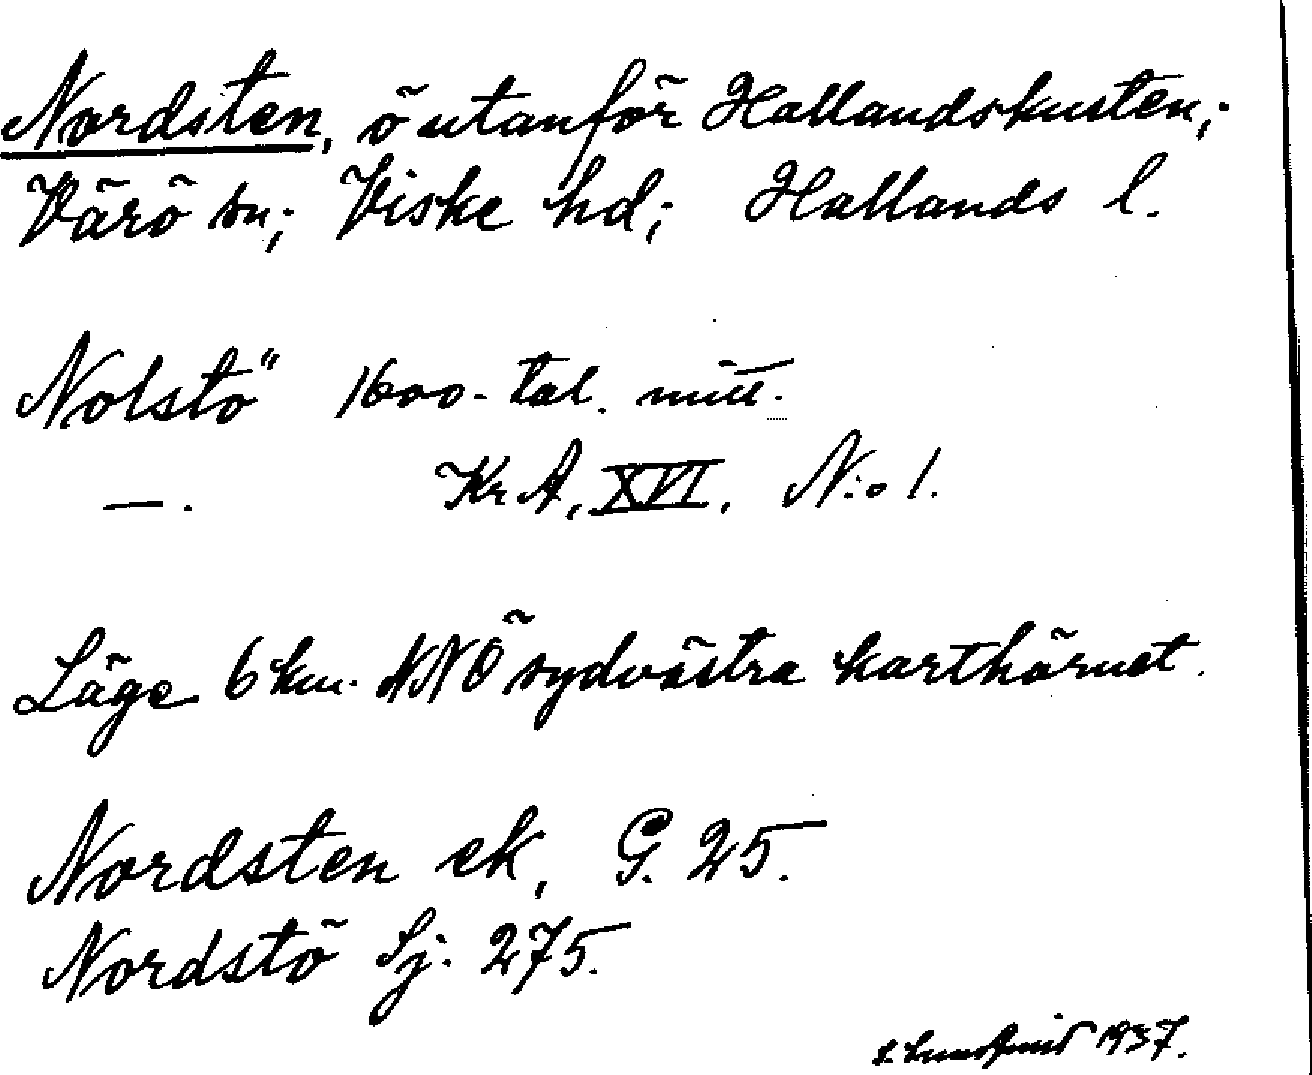 Nordsten, ö utanför Hallandskusten;
Värö sn; Viske hd; Hallands l.
Nolstö" 1600-tal. mitt.
—. KrA, XVI, N:o 1.
Läge 6 km. NNÖ sydvästra karthörnet.
Nordsten ek, G. 25.
Nordstö Sj. 275.
1937.